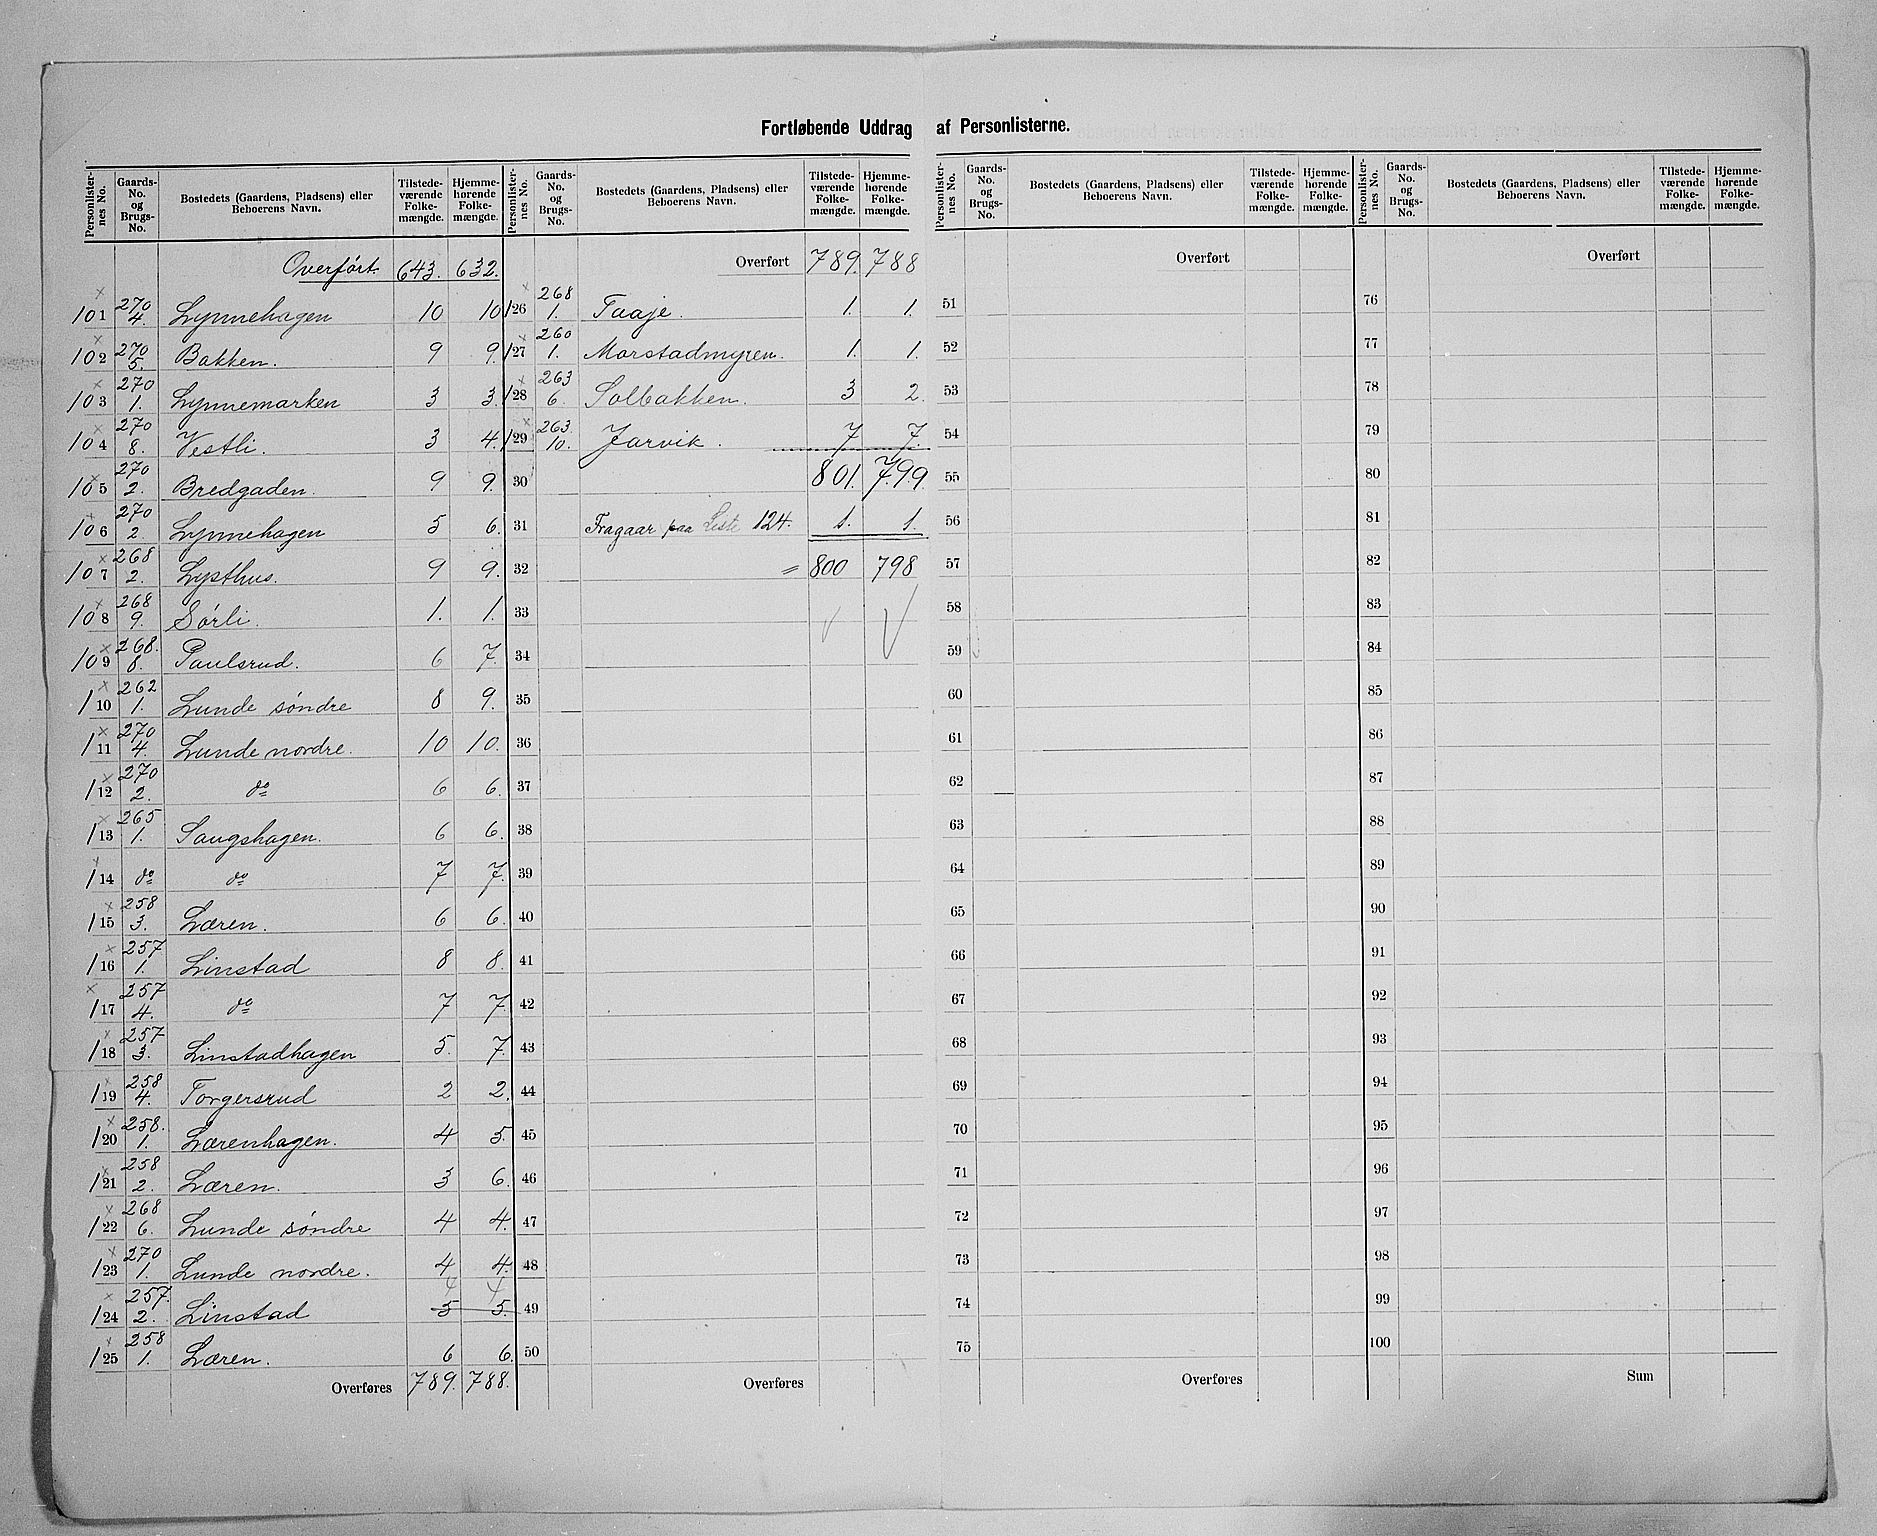 Fortløbende Uddrag af Personlisterne.
Personlisternes No. | Gaards-No. og Brugs-No. | Bostedets (Gaardens, Pladsens) eller Beboerens Navn. | Tilstedeværende Folkemængde. | Hjemmehørende Folkemængde.
Overført 643. 632.
101 270/4. Lynnehagen 10 10
102 270/5. Bakken. 9 9.
103 270/1. Lynnemarken 3 3.
104 270/8. Vestli. 3 4.
105 270/2. Bredgaden. 9 9.
106 270/2. Lynnehagen 5 6.
107 268/2. Lysthus. 9 9.
108 268/9. Sørli. 1. 1.
109 268./8. Paulsrud. 6 7.
110 262/1. Lunde søndre 8 9.
111 270/4. Lunde nordre. 10 10.
112 270/2. do 6 6.
113 265/1. Saugshagen. 6 6.
114 do do 7 7.
115 258/3. Læren. 6 6.
116 257/1. Linstad 8 8.
117 257/4. do 7 7.
118 257/3. Linstadhagen 5. 7.
119 258/4. Torgersrud 2 2.
120 258./1. Lærenhagen. 4 5.
121 258/2. Læren. 3 6.
122 268/6. Lunde søndre 4 4.
123 270/1. Lunde nordre. 4 4.
4 4
124 257./2. Linstad 5 5.
125 258/1. Læren. 6 6.
Overføres 789. 788.
Personlisternes No. | Gaards-No. og Brugs-No. | Bostedets (Gaarden, Pladsens) eller Beboerens Navn. | Tilstedeværende Folkemængde. | Hjemmehørende Folkemængde.
Overført 789. 788
126 268/1. Taaje. 1. 1.
127 260/1. Morstadmyren. 1. 1.
128 263/6. Solbakken. 3 2.
129 263./10. Jarvik. 7 7.
30 801. 799.
31 Fragaar paa Liste 124. 1. 1.
32 = 800 798
33
34
35
36
37
38
39
40
41
42
43
44
45
46
47
48
49
50
Overføres
Personlisternes No. | Gaards-No. og Brugs-No. | Bostedets (Gaarden, Pladsens) eller Beboerens Navn. | Tilstedeværende Folkemængde. | Hjemmehørende Folkemængde.
Overført
51
52
53
54
55
56
57
58
59
60
61
62
63
64
65
66
67
68
69
70
71
72
73
74
75
Overføres
Personlisternes No. | Gaards-No. og Brugs-No. | Bostedets (Gaarden, Pladsens) eller Beboerens Navn. | Tilstedeværende Folkemængde. | Hjemmehørende Folkemængde.
Overført
76
77
78
79
80
81
82
83
84
85
86
87
88
89
90
91
92
93
94
95
96
97
98
99
100
Sum